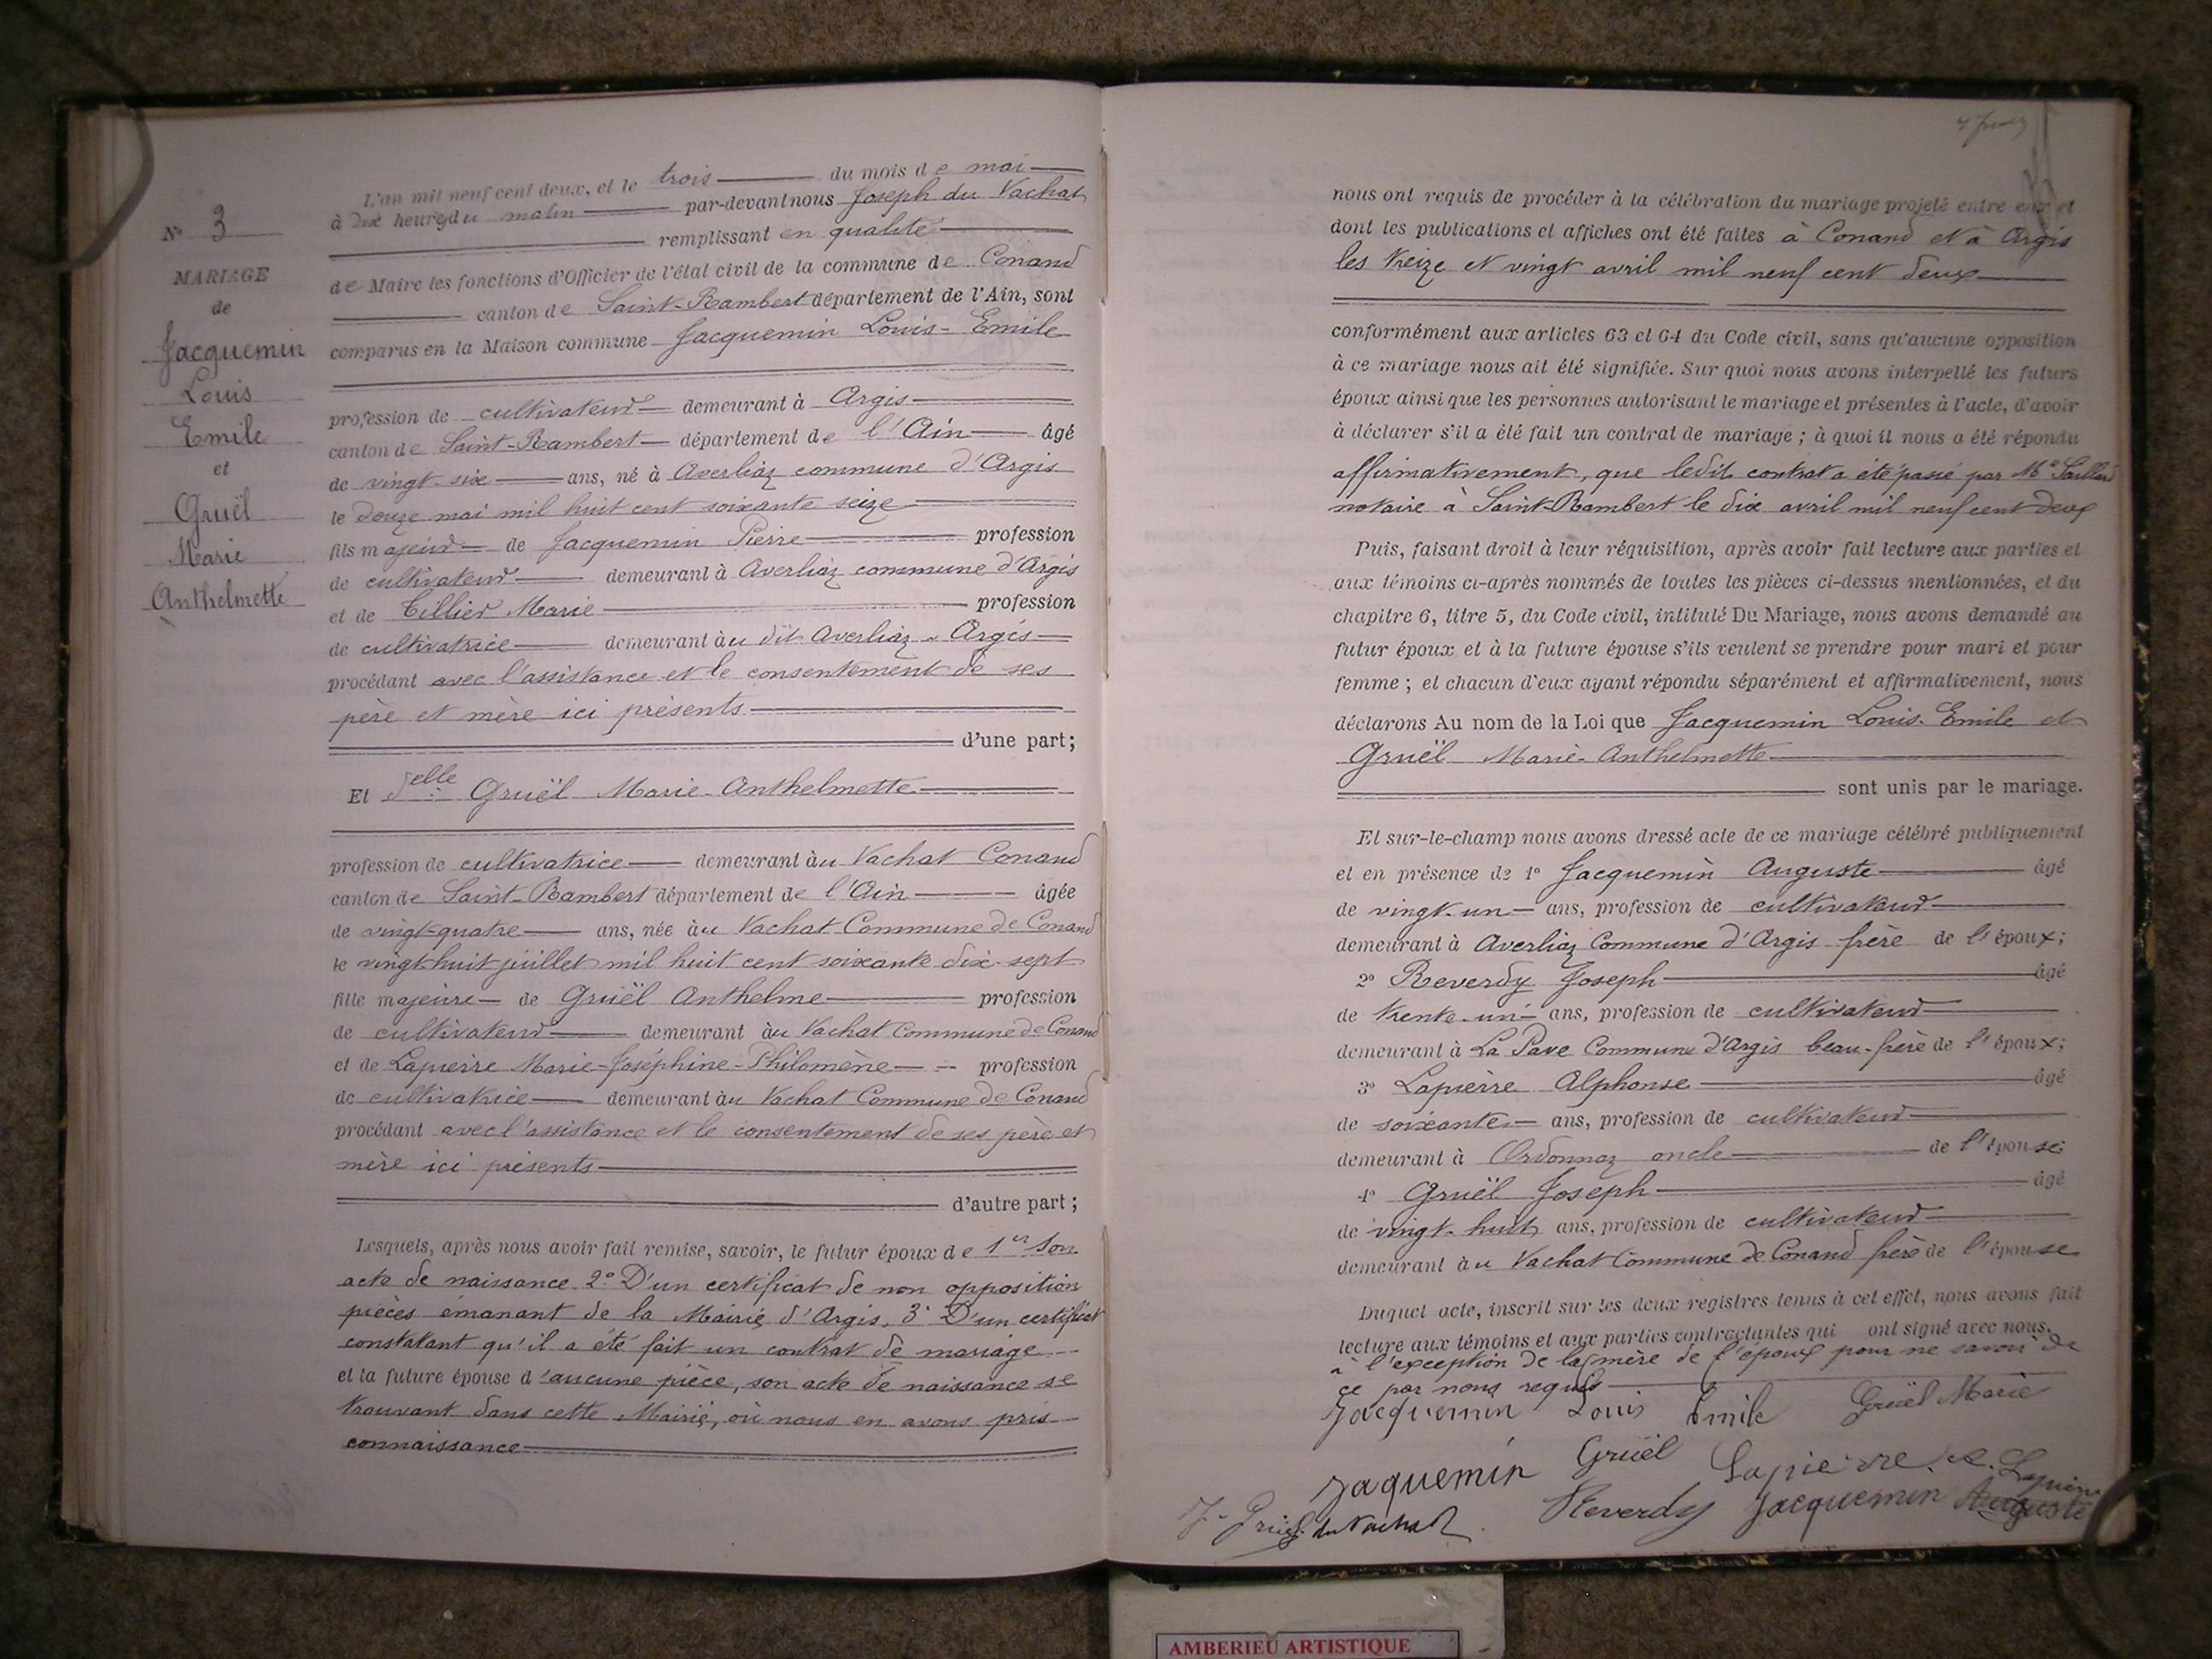 N° 3
MARIAGE
de
Jacquemin
Louis
Emile
et
Gruël
Marie
Anthelmette
L'an mil neuf cent deux, et le trois du mois de mai
à dix heures du matin par-devant nous Joseph du Vachat
remplissant en qualité
de Maire les fonctions d'Officier de l'état civil de la commune de Conand
canton de Saint-Rambert département de l'Ain, sont
comparus en la Maison commune Jacquemin Louis-Emile
profession de cultivateur demeurant à Argis
canton de Saint-Rambert département de l'Ain âgé
de vingt-six ans, né à Averliaz commune d'Argis
le douze mai mil huit cent soixante seize
fils majeur de Jacquemin Pierre profession
de cultivateur demeurant à Averliaz commune d'Argis
et de Tillier Marie profession
de cultivatrice demeurant au dit Averliaz Argis
procédant avec l'assistance et le consentement de ses
père et mère ici présents
d'une part;
Et delle Gruël Marie-Anthelmette
profession de cultivatrice demeurant au Vachat Conand
canton de Saint-Rambert département de l'Ain âgée
de vingt-quatre ans, née au Vachat Commune de Conand
le vingt-huit juillet mil huit cent soixante dix-sept
fille majeure de Gruël Anthelme profession
de cultivateur demeurant au Vachat Commune de Conand
et de Lapierre Marie-Joséphine-Philomène profession
de cultivatrice demeurant au Vachat Commune de Conand
procédant avec l'assistance et le consentement de ses père et
mère ici présents
d'autre part;
Lesquels, après nous avoir fait remise, savoir, le futur époux de 1er Son
acte de naissance 2° D'un certificat de non opposition
pièces émanant de la Mairie d'Argis. 3° D'un certificat
constatant qu'il a été fait un contrat de mariage
et la future épouse d'aucune pièce, son acte de naissance se
trouvant dans cette Mairie, où nous en avons pris
connaissance
nous ont requis de procéder à la célébration du mariage projeté entre eux et
dont les publications et affiches ont été faites à Conand et à Argis
les treize et vingt avril mil neuf cent deux
conformément aux articles 63 et 64 du Code civil, sans qu'aucune opposition
à ce mariage nous ait été signifiée. Sur quoi nous avons interpellé les futurs
époux ainsi que les personnes autorisant le mariage et présentes à l'acte, d'avoir
à déclarer s'il a été fait un contrat de mariage ; à quoi il nous a été répondu
affirmativement, que ledit contrat a été passé par Me Saillard
notaire à Saint-Rambert le dix avril mil neuf cent deux
Puis, faisant droit à leur réquisition, après avoir fait lecture aux parties et
aux témoins ci-après nommés de toutes les pièces ci-dessus mentionnées, et du
chapitre 6, titre 5, du Code civil, intitulé Du Mariage, nous avons demandé au
futur époux et à la future épouse s'ils veulent se prendre pour mari et pour
femme ; et chacun d'eux ayant répondu séparément et affirmativement, nous
déclarons Au nom de la Loi que Jacquemin Louis-Emile et
Gruël Marie-Anthelmette
sont unis par le mariage.
Et sur-le-champ nous avons dressé acte de ce mariage célébré publiquement
et en présence de 1° Jacquemin Auguste âgé
de vingt-un ans, profession de cultivateur
demeurant à Averliaz Commune d'Argis frère de l'époux;
2° Reverdy Joseph âgé
de trente-un ans, profession de cultivateur
demeurant à La Pave Commune d'Argis beau-frère de l'époux;
3° Lapierre Alphonse âgé
de soixante ans, profession de cultivateur
demeurant à Ordonnaz oncle de l'épouse
4° Gruël Joseph âgé
de vingt-huit ans, profession de cultivateur
demeurant au Vachat Commune de Conand frère de l'épouse
Duquel acte, inscrit sur les deux registres tenus à cet effet, nous avons fait
lecture aux témoins et aux parties contractantes qui ont signé avec nous.
à l'exception de la mère de l'époux pour ne savoir de
ce par nous requis
Jacquemin Louis Emile Gruël Marie
Jaquemin Gruël Lapierre. A. Lapierre
J. Gruël du Vachat Reverdy Jacquemin Auguste
AMBERIEU ARTISTIQUE